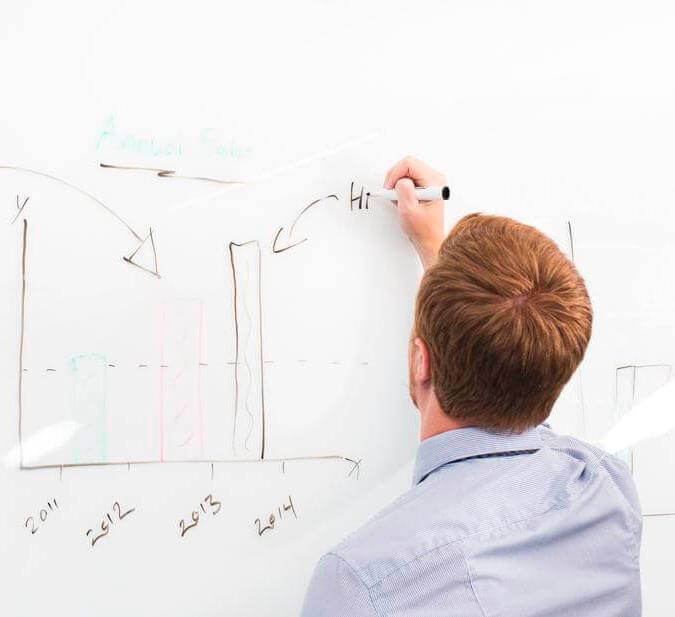 Annual Sales
Y
Hi
X
2011 2012 2013 2014